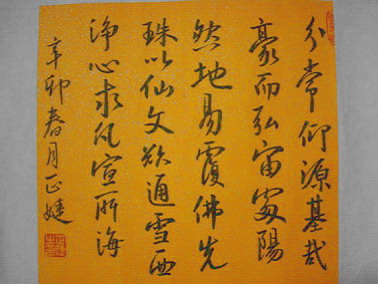 分常仰源基哉
豪而弘宙寅陽
然地易霞佛先
珠以仙文欲通雪西
净心求凡宣所海
辛卯春月正婕